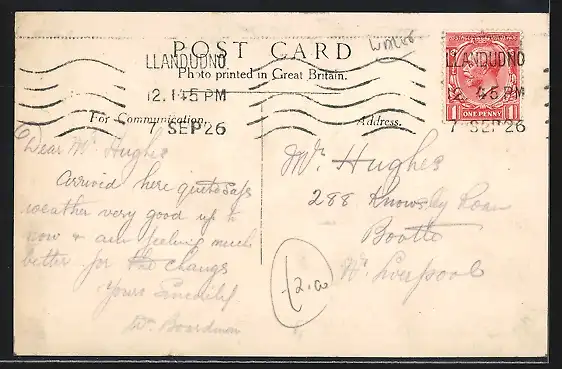 Wales
POST CARD
Photo printed in Great Britain.
For Communication.
Address.
LLANDUDNO
12.145 PM
7 SEP 26
LLANDUDNO
12 45 PM
7 SEP 26
1 ONE PENNY 1
Dear Mr Hughes
Arrived here quite safe
weather very good up to
now & am feeling much
better for the change
Yours Sincerely
W. Boardman
Mr. Hughes
288 Knowsley Road
Bootle
Nr. Liverpool
12.00